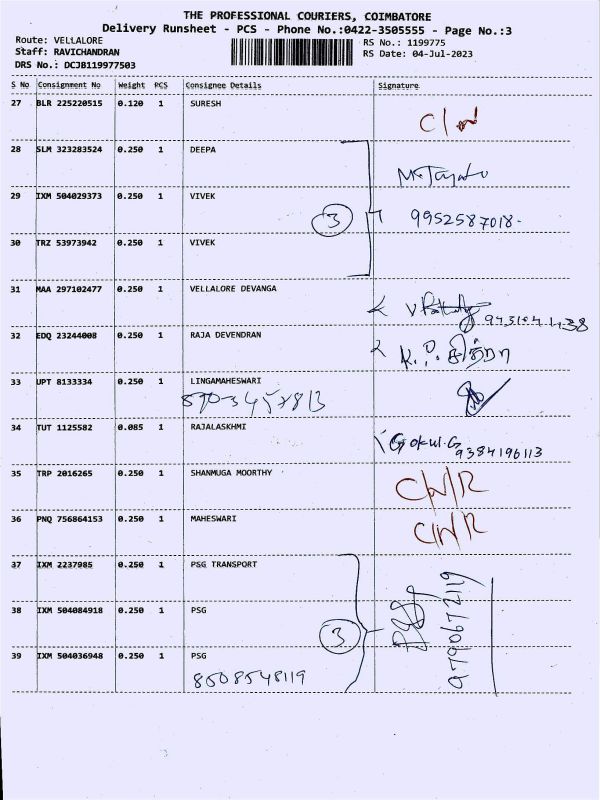 THE PROFESSIONAL COURIERS, COIMBATORE
Delivery Runsheet - PCS - Phone No.:0422-3505555 - Page No.:3
Route: VELLALORE
Staff: RAVICHANDRAN
DRS No.: DCJB119977503
RS No.: 1199775
RS Date: 04-Jul-2023
S No Consignment No Weight PCS Consignee Details Signature
27 BLR 225220515 0.120 1 SURESH
28 SLM 323283524 0.250 1 DEEPA
29 IXM 504029373 0.250 1 VIVEK
3
9952587018-
30 TRZ 53973942 0.250 1 VIVEK
31 MAA 297102477 0.250 1 VELLALORE DEVANGA
32 EDQ 23244008 0.250 1 RAJA DEVENDRAN
33 UPT 8133334 0.250 1 LINGAMAHESWARI
34 TUT 1125582 0.085 1 RAJALASKHMI
Gokul.G
9384196113
35 TRP 2016265 0.250 1 SHANMUGA MOORTHY
C/N/R
36 PNQ 756864153 0.250 1 MAHESWARI
C/N/R
37 IXM 2237985 0.250 1 PSG TRANSPORT
38 IXM 504084918 0.250 1 PSG
3
9790672119
39 IXM 504036948 0.250 1 PSG
8508548119